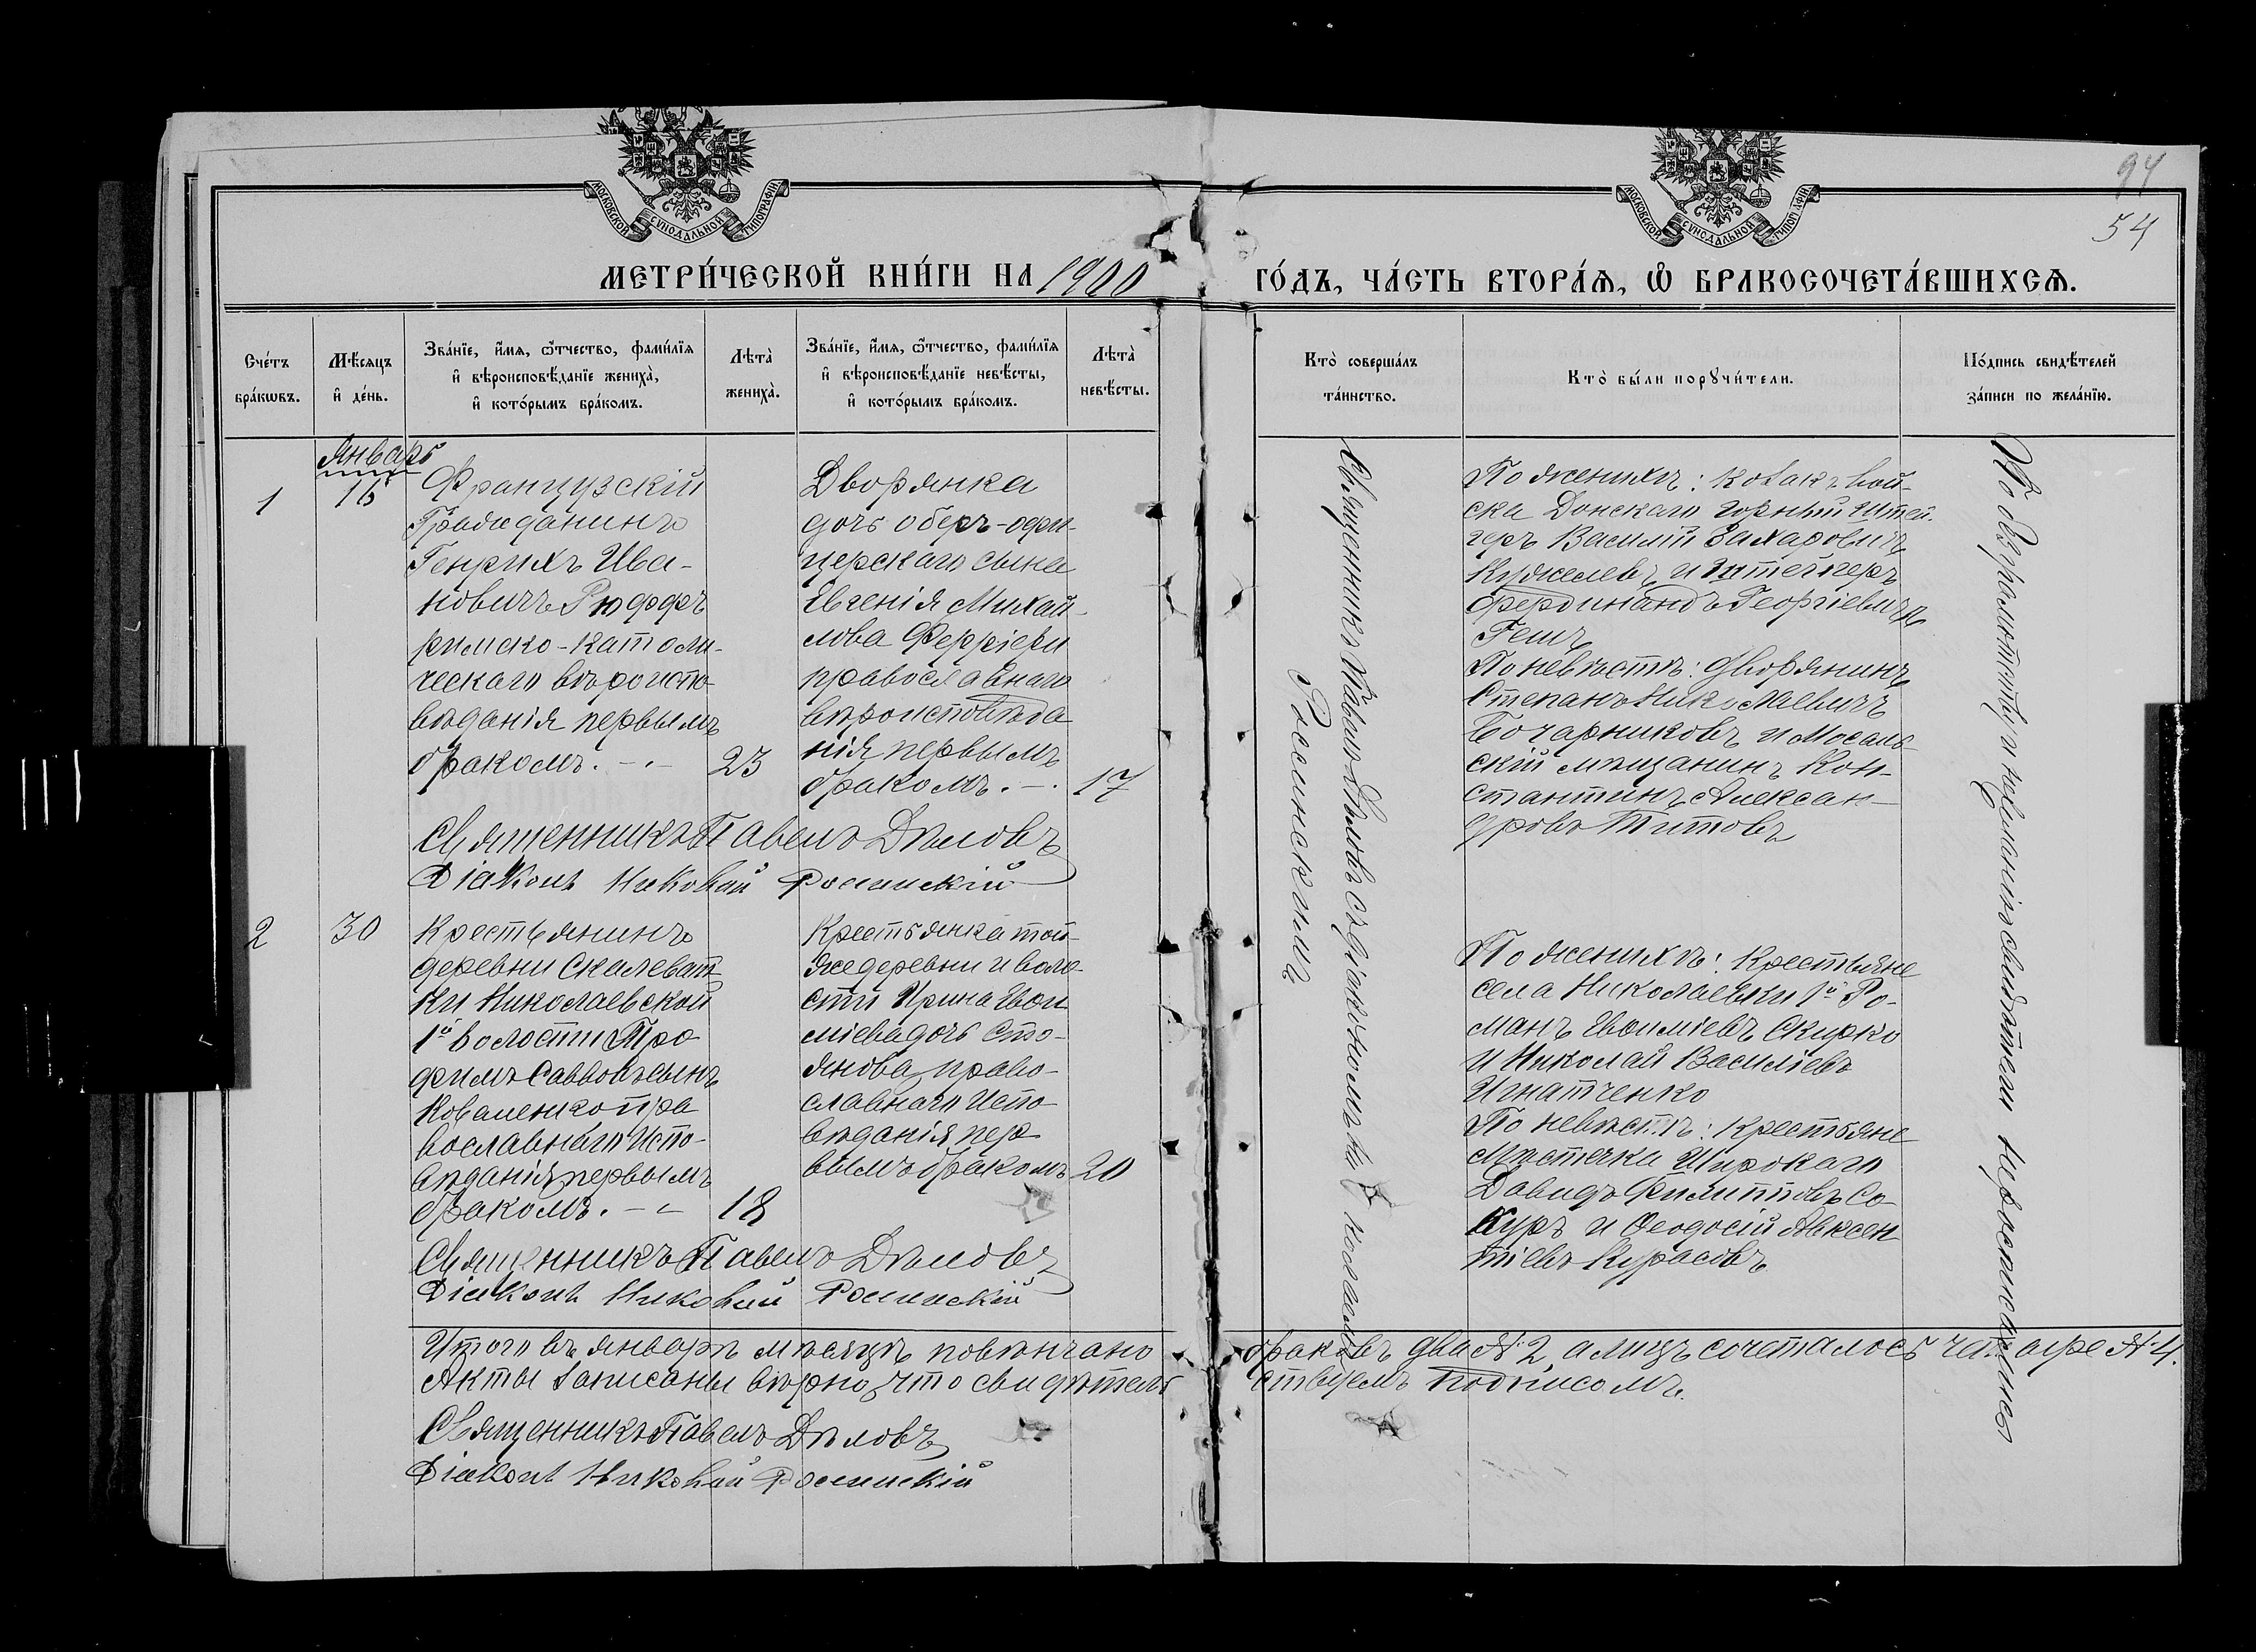 94
54
МОСКОВСКОЙ СѴНОДАЛЬНОЙ ТИПОГРАФІИ
МОСКОВСКОЙ СѴНОДАЛЬНОЙ ТИПОГРАФІИ
МЕТРИ́ЧЕСКОЙ КНИ́ГИ НА 1900 ГО́ДЪ, ЧА́СТЬ ВТОРА́Ѧ, Ѡ҆ БРАКОСОЧЕТА́ВШИХСѦ.
Сче́тъ
бра́кѡвъ.
Мѣ́сяцъ
и҆ де́нь.
Зва́нїе, и҆́мѧ, ѻ҆́тчество, фами́лїѧ
и҆ вѣроисповѣ́данїе жениха̀,
и҆ кото́рымъ бра́комъ.
Лѣта̀
жениха̀.
Зва́нїе, и҆́мѧ, ѻ҆́тчество, фами́лїѧ
и҆ вѣроисповѣ́данїе невѣ́сты,
и҆ кото́рымъ бра́комъ.
Лѣта̀
невѣ́сты.
Кто̀ соверша́лъ
та́инство.
Кто̀ бы́ли порꙋчи́тели.
По́дпись свидѣ́телей
за́писи по жела́нїю.
Январь
1
16
Французскій
Гражданинъ
Генрихъ Ива-
новичъ Рюффъ
римско-католи-
ческаго вѣроиспо-
вѣданія первымъ
бракомъ.
23
Дворянка
дочь оберъ-офи-
церскаго сына
Евгенія Михай-
лова Ферріери
православнаго
вѣроисповѣда
нія первымъ
бракомъ.
17
Священникъ Павелъ Дѣловъ
Діаконъ Николай Росинскій
Священникъ Павелъ Дѣловъ съ діакономъ Николаемъ
Росинскимъ
По женихѣ: козакъ вой-
ска Донскаго горный штей-
геръ Василій Захаровичъ
Кужелевъ и штейгеръ
Фердинандъ Георгіевичъ
Гешъ
По невѣстѣ: дворянинъ
Степанъ Николаевичъ
Бочарниковъ и Мосаль-
скій мѣщанинъ Кон-
стантинъ Алексан-
дровъ Титовъ
По безграмотству и нежеланію свидѣтели не росписались
2
30
Крестьянинъ
деревни Скалеват-
ки Николаевской
1й волости Тро
фимъ Саввовъ сынъ
Коваленко пра
вославнаго испо-
вѣданія первымъ
бракомъ.
18
Крестьянка той-
же деревни и воло-
сти Ирина Евѳи
міева дочь Сто-
янова право-
славнаго испо-
вѣданія пер
вымъ бракомъ
20
Священникъ Павелъ Дѣловъ
Діаконъ Николай Росинскій
По женихѣ: крестьяне
села Николаевки 1й Ро-
манъ Евѳиміевъ Скирко
и Николай Василіевъ
Игнатченко
По невѣстѣ: крестьяне
мѣстечка Широкаго
Давидъ Филипповъ Со-
куръ и Ѳеодосій Авксен
тіевъ Курасовъ
Итого въ январѣ мѣсяцѣ повѣнчано браковъ два № 2, а лицъ сочеталось четыре № 4.
Акты записаны вѣрно, что свидѣтель ствуемъ подписомъ.
Священникъ Павелъ Дѣловъ
Діаконъ Николай Росинскій